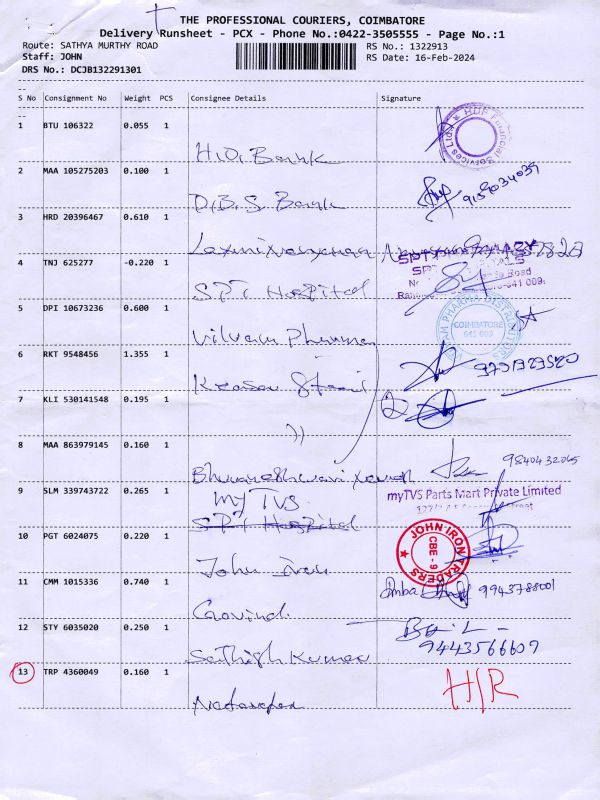 THE PROFESSIONAL COURIERS, COIMBATORE
Delivery Runsheet - PCX - Phone No.:0422-3505555 - Page No.:1
Route: SATHYA MURTHY ROAD RS No.: 1322913
Staff: JOHN RS Date: 16-Feb-2024
DRS No.: DCJB132291301
--
S No Consignment No Weight PCS Consignee Details Signature
--
1 BTU 106322 0.055 1
HDF Financial Services Ltd
Bank
2 MAA 105275203 0.100 1
9159034039
D.B.S Bank
3 HRD 20396467 0.610 1
Laxminarayanan
SPT
4 TNJ 625277 -0.220 1
Road
SPT Hospital
5 DPI 10673236 0.600 1
PHARMA DISTRIBUTORS
COIMBATORE
641 009
Vilvam Pharma
6 RKT 9548456 1.355 1
Steel
7 KLI 530141548 0.195 1
"
8 MAA 863979145 0.160 1
9840432065
Bhuvaneshwari
9 SLM 339743722 0.265 1
myTVS Parts Mart Private Limited
My TVS
SPT Hospital
10 PGT 6024075 0.220 1
JOHN IRON TRADERS
CBE - 9
John Iron
11 CMM 1015336 0.740 1
9943788001
Govind
12 STY 6035020 0.250 1
9443566607
Sathish Kumar
13 TRP 4360049 0.160 1
H/R
Natarajan